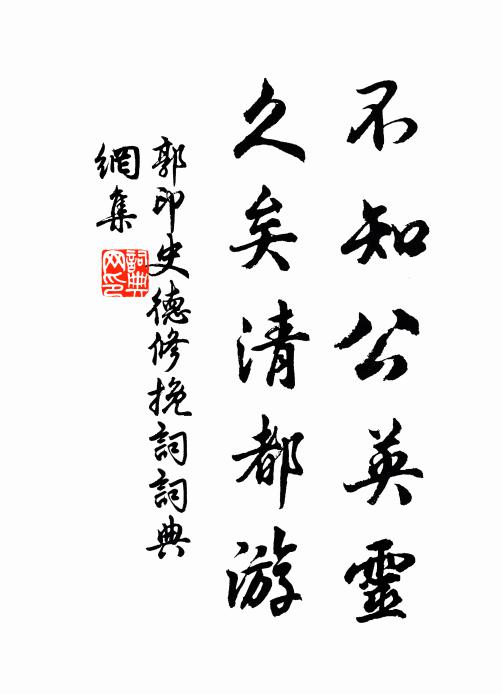 不知公英靈
久矣清都游
郭印史德修挽詞詞典
網集
詞典
网印